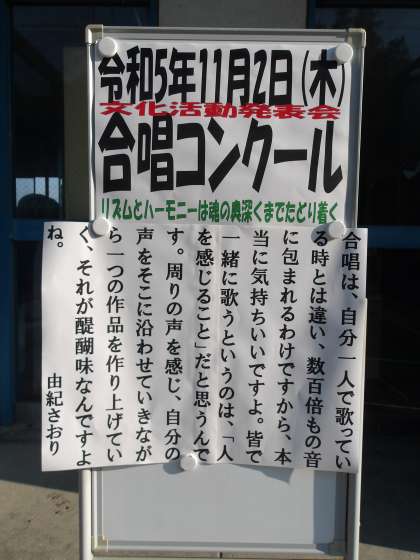 令和5年11月2日(木)
文化活動発表会
合唱コンクール
リズムとハーモニーは魂の奥深くまでたどり着く
合唱は、自分一人で歌ってい
る時とは違い、数百倍もの音
に包まれるわけですから、本
当に気持ちいいですよ。皆で
一緒に歌うというのは、「人
を感じること」だと思うんで
す。周りの声を感じ、自分の
声をそこに沿わせていきなが
ら一つの作品を作り上げてい
く、それが醍醐味なんですよ
ね。
由紀さおり